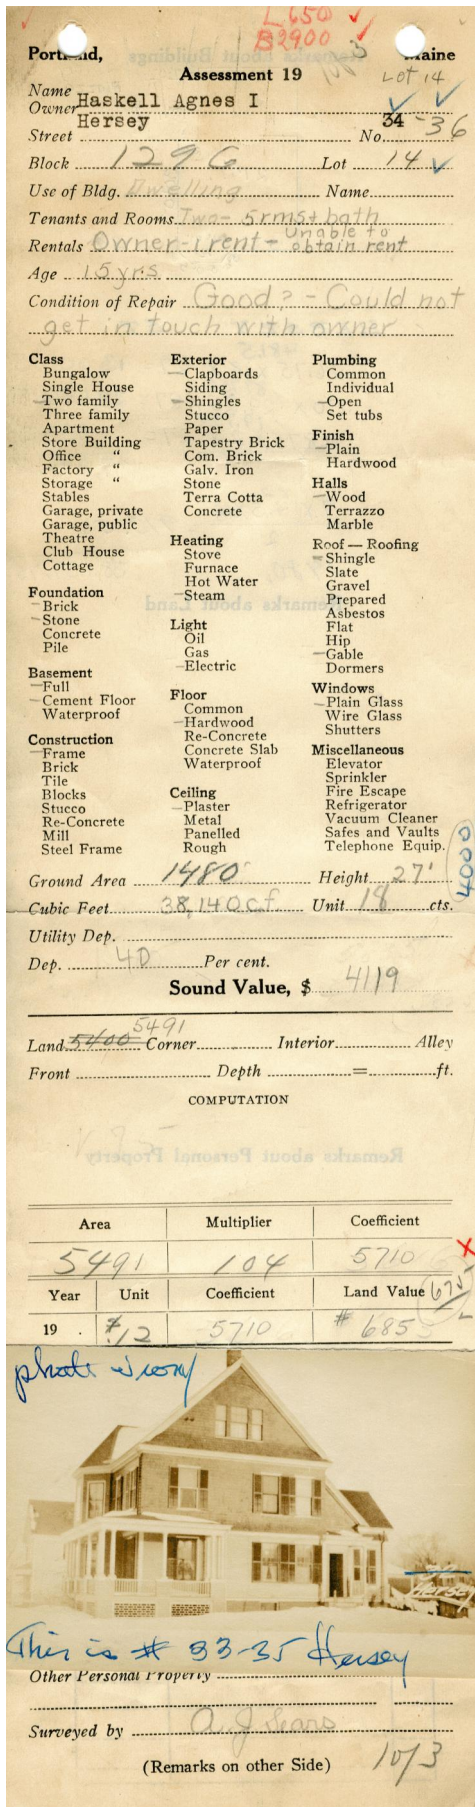 L 650
B 2900
Portland, Maine
Assessment 19 Lot 14
Name
Owner Haskell Agnes I
Street Hersey No. 34-36
Block 129 G Lot 14
Use of Bldg. Dwelling Name
Tenants and Rooms Two - 5 rms + bath
Rentals Owner - 1 rent - Unable to obtain rent
Age 15 yrs
Condition of Repair Good? - Could not
get in touch with owner
Class
Bungalow
Single House
Two family
Three family
Apartment
Store Building
Office "
Factory "
Storage "
Stables
Garage, private
Garage, public
Theatre
Club House
Cottage
Foundation
Brick
Stone
Concrete
Pile
Basement
Full
Cement Floor
Waterproof
Construction
Frame
Brick
Tile
Blocks
Stucco
Re-Concrete
Mill
Steel Frame
Exterior
Clapboards
Siding
Shingles
Stucco
Paper
Tapestry Brick
Com. Brick
Galv. Iron
Stone
Terra Cotta
Concrete
Heating
Stove
Furnace
Hot Water
Steam
Light
Oil
Gas
Electric
Floor
Common
Hardwood
Re-Concrete
Concrete Slab
Waterproof
Ceiling
Plaster
Metal
Panelled
Rough
Plumbing
Common
Individual
Open
Set tubs
Finish
Plain
Hardwood
Halls
Wood
Terrazzo
Marble
Roof — Roofing
Shingle
Slate
Gravel
Prepared
Asbestos
Flat
Hip
Gable
Dormers
Windows
Plain Glass
Wire Glass
Shutters
Miscellaneous
Elevator
Sprinkler
Fire Escape
Refrigerator
Vacuum Cleaner
Safes and Vaults
Telephone Equip.
4000
Ground Area 1480 Height 27'
Cubic Feet 38,140 c.f. Unit 18 cts.
Utility Dep.
Dep. 40 Per cent.
Sound Value, $ 4119
5491
Land 5400 Corner Interior Alley
Front Depth = ft.
COMPUTATION
Remarks about Personal Property
Area Multiplier Coefficient
5491 104 5710
Year Unit Coefficient Land Value 675
19 . $.12 5710 # 685
photo wrong
Hersey
This is # 33-35 Hersey
Other Personal Property
Surveyed by A. J. Sears
(Remarks on other Side) 10/3